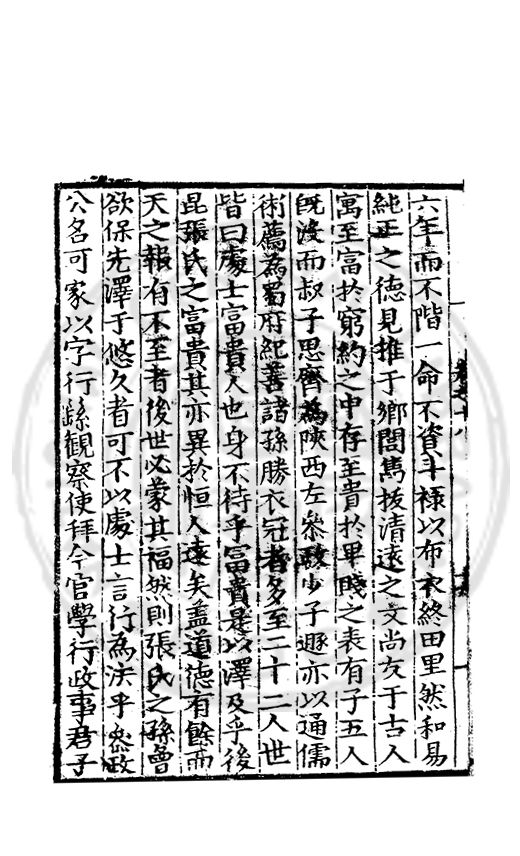 六年而不階一命不資斗祿以布衣終田里然和易
純正之德見推于鄉閭雋拔清遠之文尚友于古人
寓至富於窮約之中存至貴於卑賤之表有子五人
既沒而叔子思齊為陝西左叅政少子遯亦以通儒
術薦為蜀府紀善諸孫勝衣冠者多至二十二人世
皆曰處士富貴人也身不待乎富貴是以澤及乎後
昆張氏之富貴其亦異於恒人遠矣盖道德有餘而
天之報有不至者後世必蒙其福然則張氏之孫曾
欲保先澤于悠久者可不以處士言行為法乎叅政
公名可家以字行繇觀察使拜今官學行政事君子